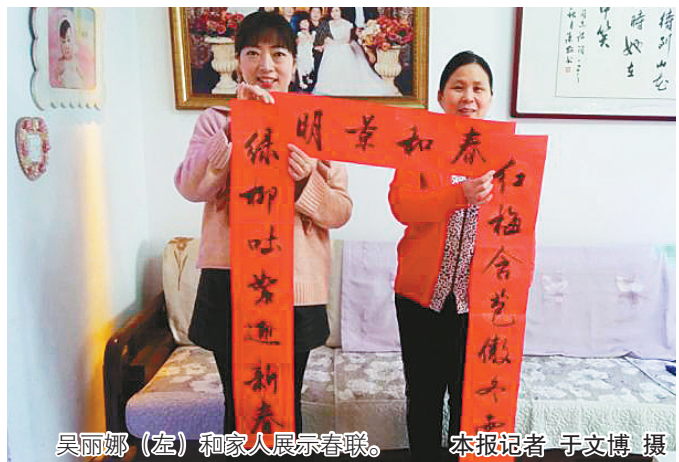 待到山花
时她在
中笑
春和景明
红梅含苞傲冬雪
绿柳吐絮迎新春
吴丽娜（左）和家人展示春联。
本报记者 于文博 摄